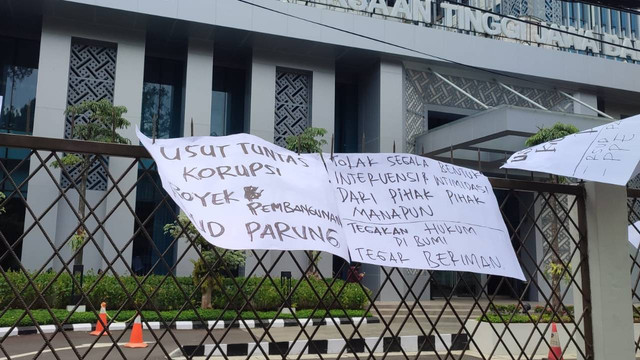 KSAAN TINGGI JAWA BA
USUT TUNTAS
KORUPSI
ROYEK PEMBANGUNAN
UD PARUNG
TOLAK SEGALA BENTUK
INTERVENSI INTIMIDASI
DARI PIHAK PIHAK
MANAPUN
TEGAKAN HUKUM
DI BUMI
TEGAR BERIMAN